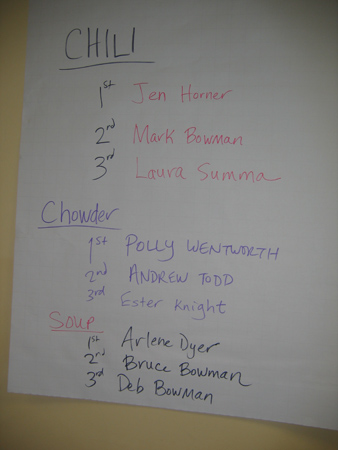 CHILI
1st Jen Horner
2nd Mark Bowman
3rd Laura Summa
Chowder
1st POLLY WENTWORTH
2nd ANDREW TODD
3rd Ester Knight
Soup
1st Arlene Dyer
2nd Bruce Bowman
3rd Deb Bowman